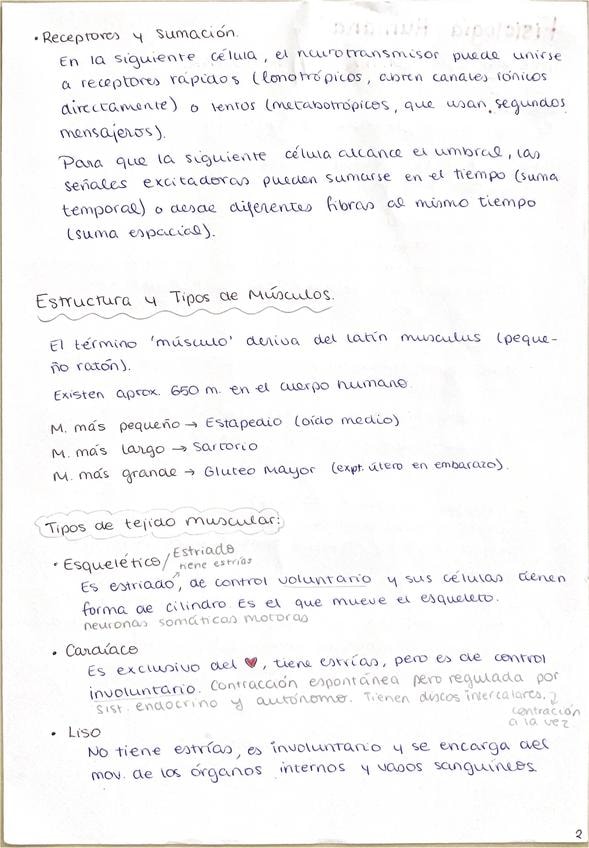 • Receptores y sumación.
En la siguiente célula, el neurotransmisor puede unirse
a receptores rápidos (Ionotrópicos, abren canales iónicos
directamente) o lentos (metabotrópicos, que usan segundos
mensajeros).
Para que la siguiente célula alcance el umbral, las
señales excitadoras pueden sumarse en el tiempo (suma
temporal) o desde diferentes fibras al mismo tiempo
(suma espacial).
Estructura y Tipos de Músculos.
El término 'músculo' deriva del latín musculus (peque-
ño ratón).
Existen aprox. 650 m. en el cuerpo humano.
M. más pequeño → Estapedio (oído medio)
M. más largo → Sartorio
M. más grande → Gluteo Mayor (expt. útero en embarazo).
Tipos de tejido muscular:
• Esquelético / Estriado
tiene estrías
Es estriado, de control voluntario y sus células tienen
forma de cilindro Es el que mueve el esqueleto.
neuronas somáticas motoras
• Cardíaco
Es exclusivo del ♥, tiene estrías, pero es de control
involuntario. Contracción espontánea pero regulada por
sist. endocrino y autónomo. Tienen discos intercalares.
contración
a la vez
• Liso
No tiene estrías, es involuntario y se encarga del
mov. de los órganos internos y vasos sanguíneos
2